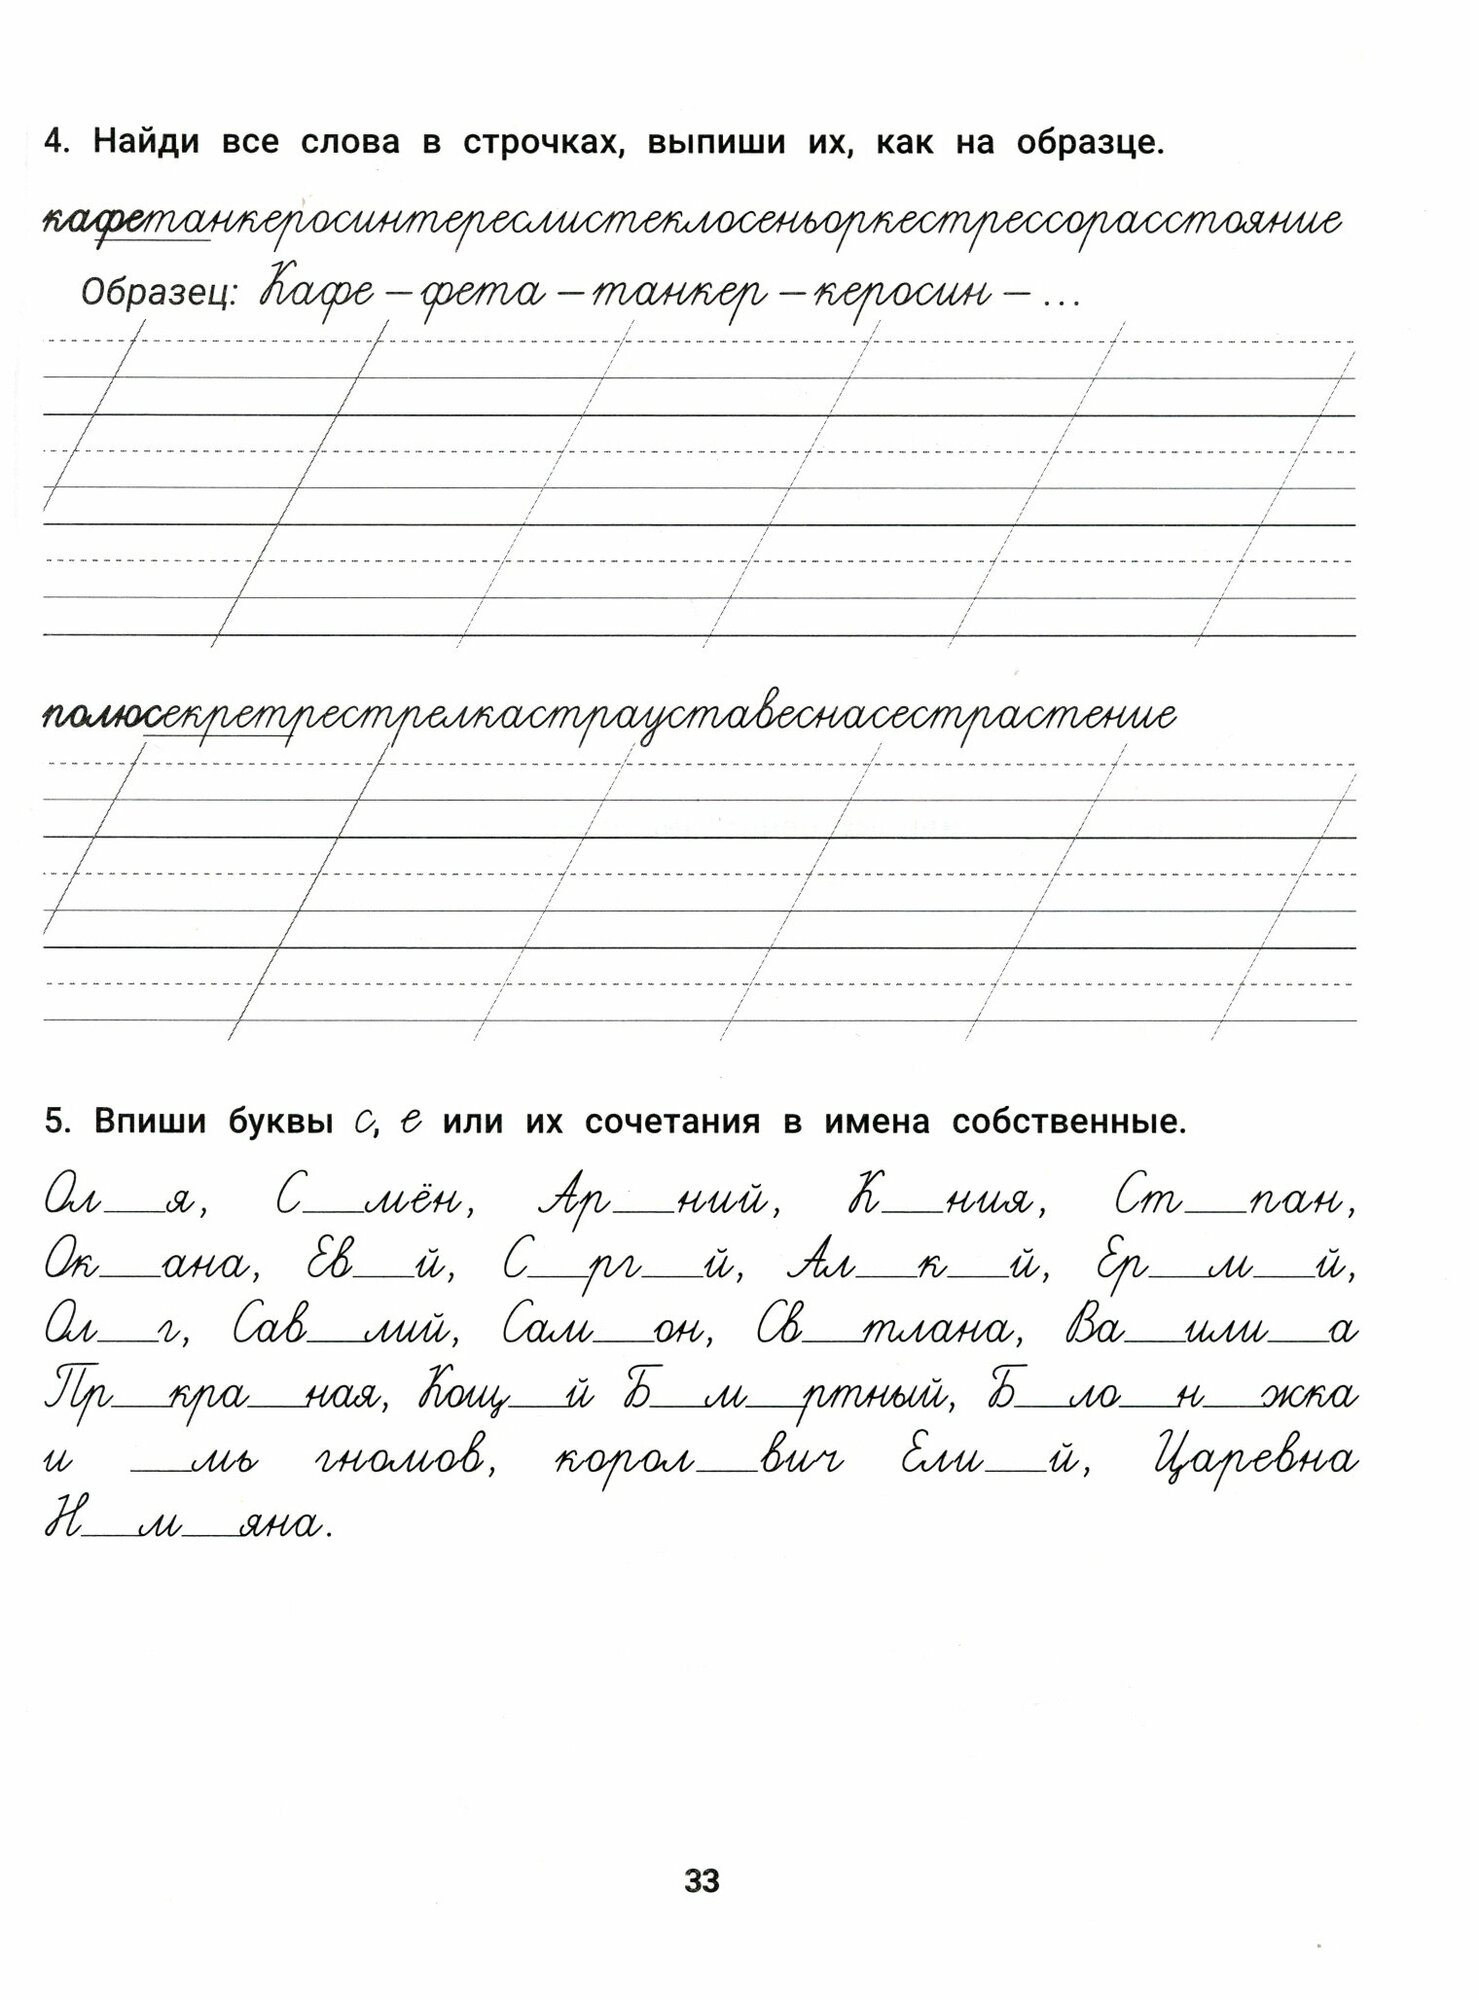 4. Найди все слова в строчках, выпиши их, как на образце.
кафетанкеросинтереслистеклосеньоркестрессорасстояние
Образец: Кафе – фета – танкер – керосин – ...
полюсекретрестрелкастрауставеснасестрастение
5. Впиши буквы с, е или их сочетания в имена собственные.
Ол__я, С__мён, Ар__ний, К__ния, Ст__пан,
Ок__ана, Ев__й, С__рг__й, Ал__к__й, Ер__м__й,
Ол__г, Сав__лий, Сам__он, Св__тлана, Ва__или__а
Пр__кра__ная, Кощ__й Б__м__ртный, Б__ло__н__жка
и __мь гномов, корол__вич Ели__й, Царевна
Н__м__яна.
33